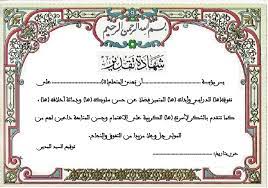 بسم الله الرحمن الرحيم
شهادة تقدير
يسر يؤسسة أن تهدي المتعلم(ة) على
تفوقه(ها) الدراسي وأدائه (ها) المتميز فضلا عن حسن سلوكه (ها) ودماثة أخلاقه (ها)
كما تتقدم بالشكر لأسرته (ها) الكريمة على الاهتمام وحسن المتابعة داعين لهم من
المولى عز وجل مزيدا من التفوق والنجاح
توقيع السيد المدير
حرر بتاريخ